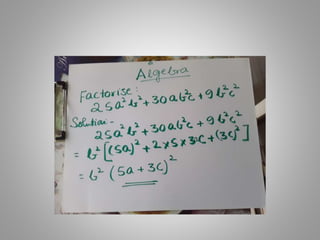 Algebra
Factorise:
25a²b² + 30ab²c + 9b²c²
Solution:-
25a²b² + 30ab²c + 9b²c²
= b² [(5a)² + 2×5×3c + (3c)²]
= b² (5a + 3c)²